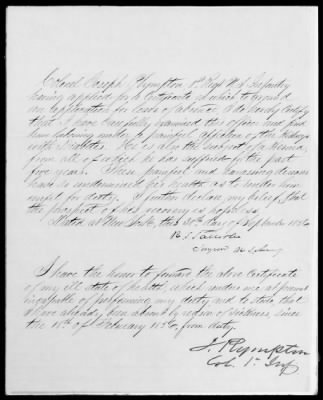 Colonel Joseph Plympton, 1st Regt U.S. Infantry
having applied for a Certificate on which to ground
an application for leave of absence, I do hereby certify
that I have carefully examined this officer and find
him laboring under a painful affection of the Kidneys
with Diabetes. He is also the subject of a Hernia,
from all of which he has suffered for the past
five years. These painful and harassing diseases
have so undermined his health as to render him
unfit for duty. I further declare my belief, that
the prospect of his recovery is hopeless.
Dated at New York, this 30th day of September 1856
Surgeon U.S. Army
I have the honor to forward the above Certificate
of my ill state of health, which renders me at present
incapable of performing my duty, and to state, that
I have already been absent by reason of Sickness, since
the 18th of February 1856, from duty.
J. Plympton
Col. 1st Inf